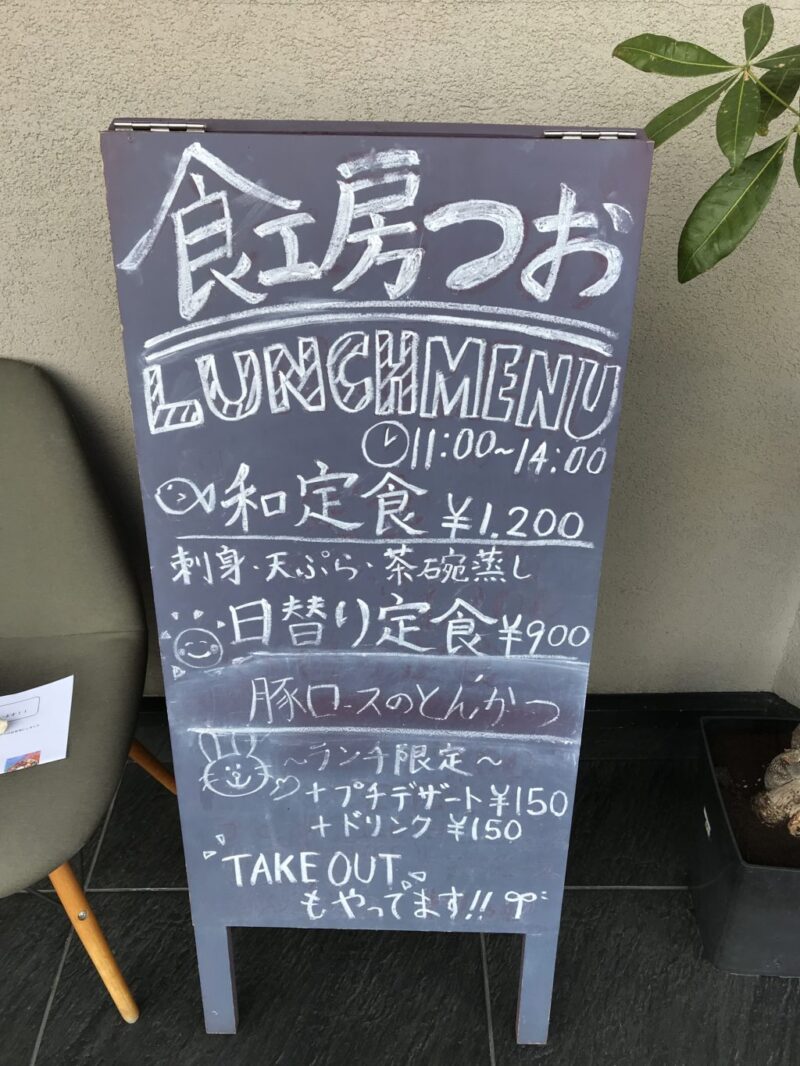 食工房つお
LUNCH MENU
11:00~14:00
和定食 ¥1.200
刺身・天ぷら・茶碗蒸し
日替り定食 ¥900
豚ロースのとんかつ
~ランチ限定~
+プチデザート ¥150
+ドリンク ¥150
TAKE OUT
もやってます!!